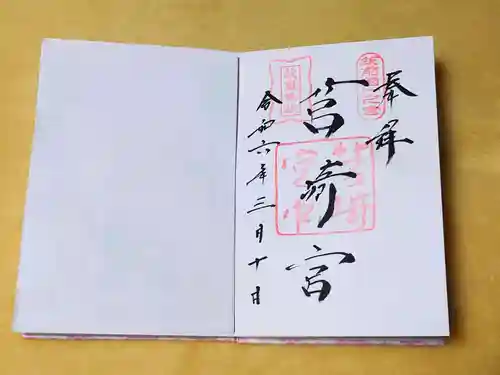 奉拝
筥崎宮
令和六年三月十日